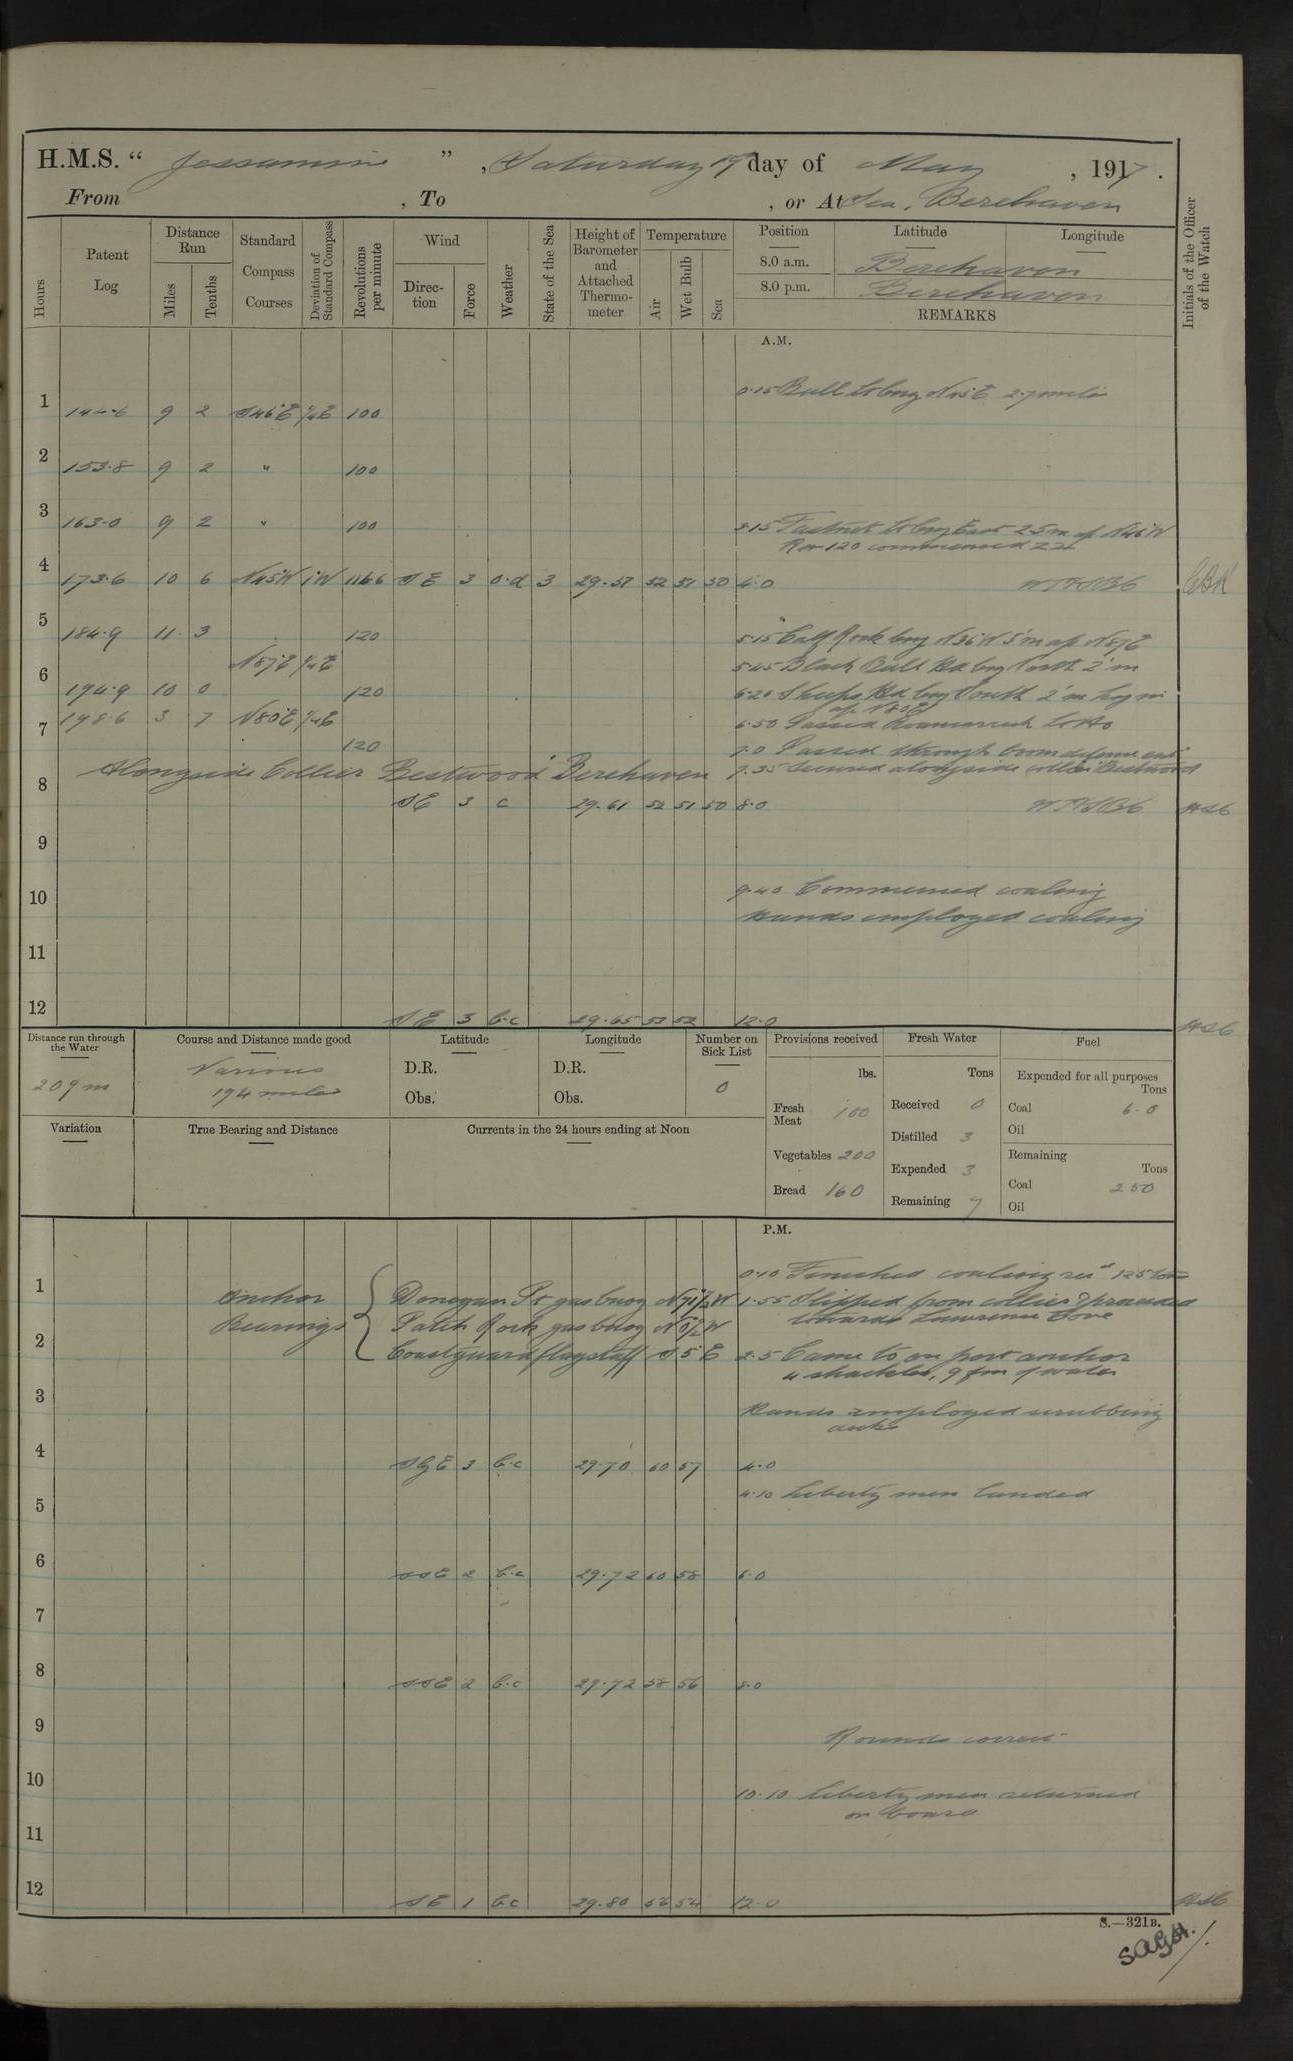 H.M.S. " Jessamine " , Saturday 19 day of May , 1917 .
From , To , or At Sea, Berehaven
Hours Patent Log Distance Run Miles Tenths Standard Compass Courses Deviation of Standard Compass Revolutions per minute Wind Direction Force Weather State of the Sea Height of Barometer and Attached Thermometer Temperature Air Wet Bulb Sea Position Latitude Longitude Initials of the Officer of the Watch
8.0 a.m. Berehaven
8.0 p.m. Berehaven
REMARKS
A.M.
0.15 Bull Lt brg N45°E 2.7 miles
1 9 2 S46°E ¼E 100
2 153.8 9 2 " 100
3 163.0 9 2 " 100
3.15 Fastnet Lt brg East 2.5m a/c N46°W
Rev 120 commenced ZZ
4 173.6 10 6 N45°W 1°W 116.6 SE 3 o.d 3 29.57 52 51 50 4.0
5 184.9 11 3 120
5.15 Calf Rock brg N36°W 5'm a/c N87E
N87°E ¼E
5.45 Black Ball Hd brg North 2'm
6 194.9 10 0 120
6.20 Sheeps Hd brg South 2'm
a/c N80E
198.6 3 7 N80°E ¼E
6.50 Passed Roancarrick Lt Ho
7 120
7.0 Passed through boom defence
Alongside Collier Bestwood Berehaven
7.35 Secured alongside collier Bestwood
8 SE 3 c 29.61 52 51 50 8.0
9
9.40 Commenced coaling
10
Hands employed coaling
11
12 SE 3 b.c 29.65 53 52 12.0
Distance run through the Water
209 m
Course and Distance made good
Various
194 miles
Latitude
D.R.
Obs.
Longitude
D.R.
Obs.
Number on Sick List
0
Provisions received
lbs.
Fresh Meat 100
Vegetables 200
Bread 160
Fresh Water
Tons
Received 0
Distilled 3
Expended 3
Remaining 7
Fuel
Expended for all purposes
Tons
Coal 6.0
Oil
Remaining
Tons
Coal 250
Oil
Variation
True Bearing and Distance
Currents in the 24 hours ending at Noon
P.M.
0.10 Finished coaling recd 125 tons
1
Anchor Bearings
Donegan Pt gas buoy
1.55 Slipped from collier & proceeded
towards Lawrence Cove
2
Palch Rock gas buoy
Coastguard flagstaff S 5 E
2.5 Came to on port anchor
4 shackles, 9 fm of water
3
Hands employed scrubbing
decks
4 SSE 3 b.c 29.70 60 57 4.0
4.10 Liberty men landed
5
6 SSE 2 b.c 29.72 60 58 6.0
7
8 SSE 2 b.c 29.72 58 56 8.0
9
Rounds correct
10
10.10 Liberty men returned
on board
11
12 SE 1 b.c 29.80 56 54 12.0
S.—321B.